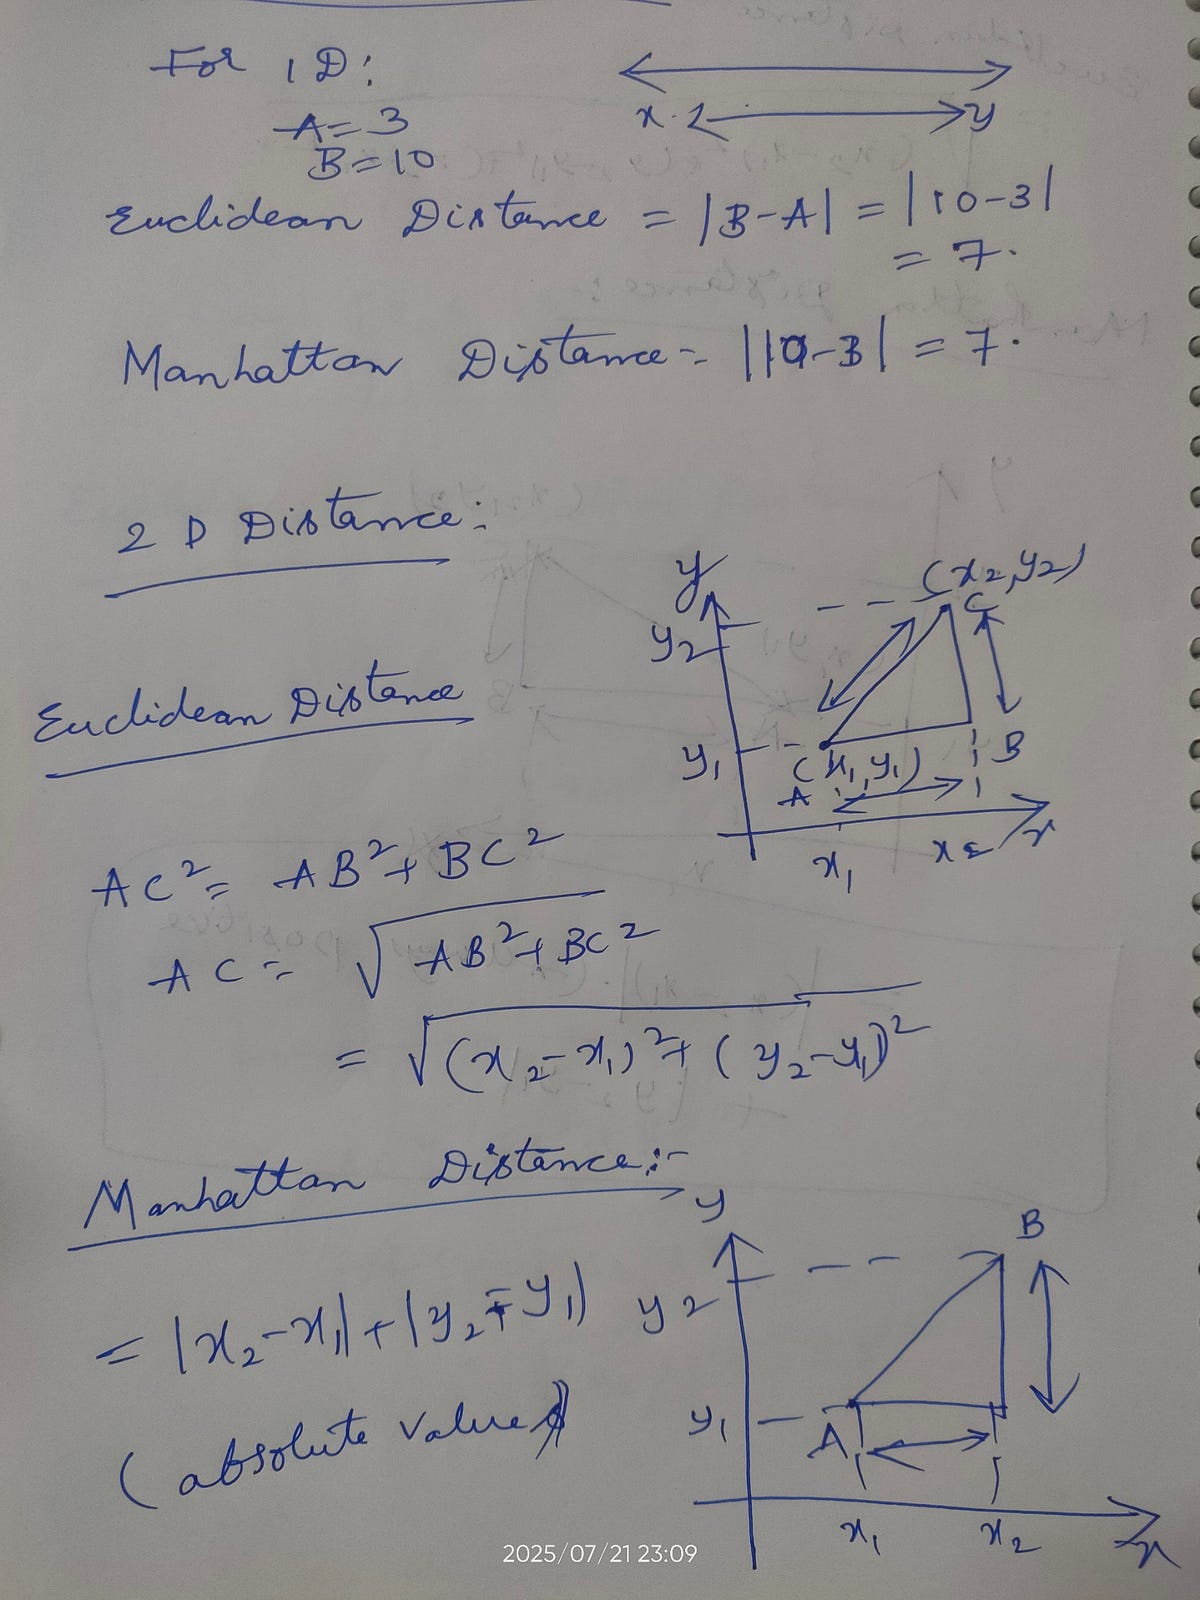 For 1D:
A = 3
B = 10
x
y
Euclidean Distance = |B-A| = |10-3|
= 7.
Manhattan Distance = |10-3| = 7.
2 D Distance:
y
(x2, y2)
C
y2
Euclidean Distance
y1
(x1, y1)
B
A
x1
x2
x
AC² = AB² + BC²
AC = √AB² + BC²
= √(x2 - x1)² + (y2 - y1)²
Manhattan Distance :-
y
B
= |x2 - x1| + |y2 - y1|
y2
y1
A
(absolute value)
x1
x2
x
2025/07/21 23:09